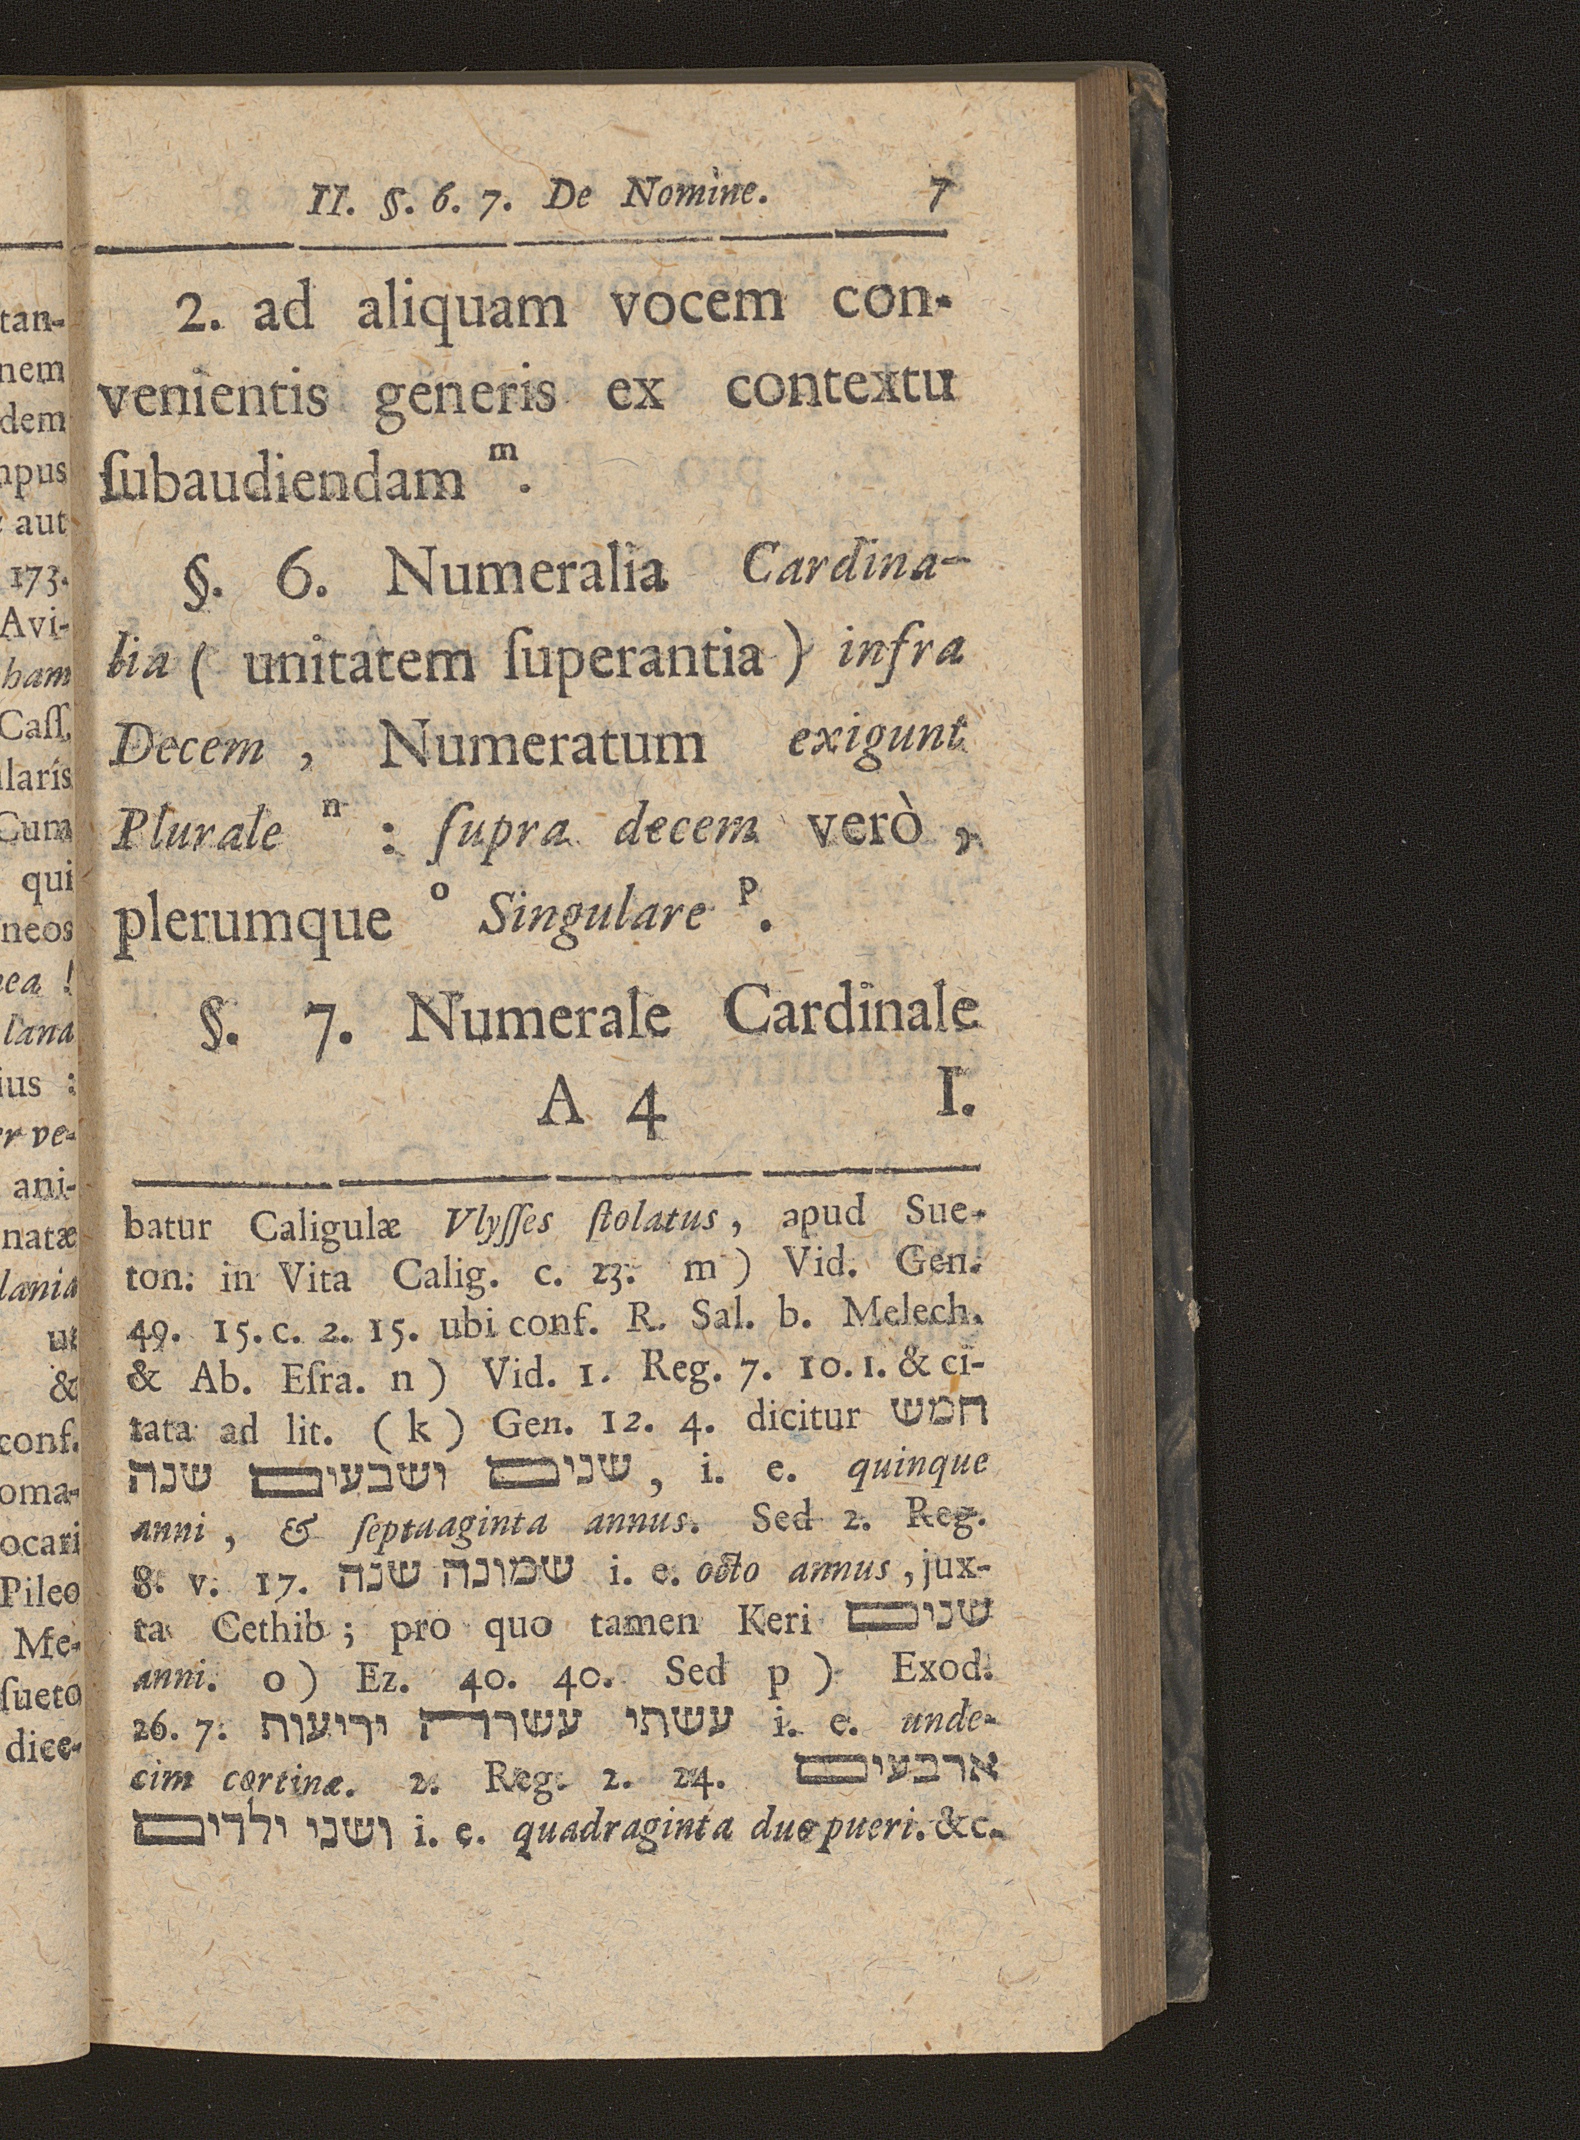 II. §. 6. 7. De Nomine. 7
2. ad aliquam vocem con-
venientis generis ex contextu
ſubaudiendam m.
§. 6. Numeralia Cardina-
lia ( unitatem ſuperantia ) infra
Decem , Numeratum exigunt
Plurale n : ſupra decem verò ,
plerumque o Singulare p.
§. 7. Numerale Cardinale
A 4 I.
batur Caligulæ Vlyſſes ſtolatus, apud Sue-
ton. in Vita Calig. c. 23. m ) Vid. Gen.
49. 15. c. 2. 15. ubi conf. R. Sal. b. Melech.
& Ab. Eſra. n ) Vid. 1. Reg. 7. 10. 1. & ci-
tata ad lit. ( k ) Gen. 12. 4. dicitur חמש
שנים ושבעים שנה , i. e. quinque
anni , & ſeptuaginta annus. Sed 2. Reg.
8. v. 17. שמונה שנה i. e. octo annus , jux-
ta Cethib ; pro quo tamen Keri שנים
anni. o ) Ez. 40. 40. Sed p ) Exod.
26. 7. עשתי עשרה יריעות i. e. unde-
cim cortinæ. 2. Reg. 2. 24. ארבעים
ושני ילדים i. e. quadraginta duo pueri. &c.
tan-
nem
dem
mpus
aut
173.
Avi-
ham
Caſſ.
ularis
Cum
qui
neos
nea !
lana
ius :
er ve-
ani-
natæ
lania
ut
&
conf.
oma-
ocari
Pileo
Me-
ſueto
dice-